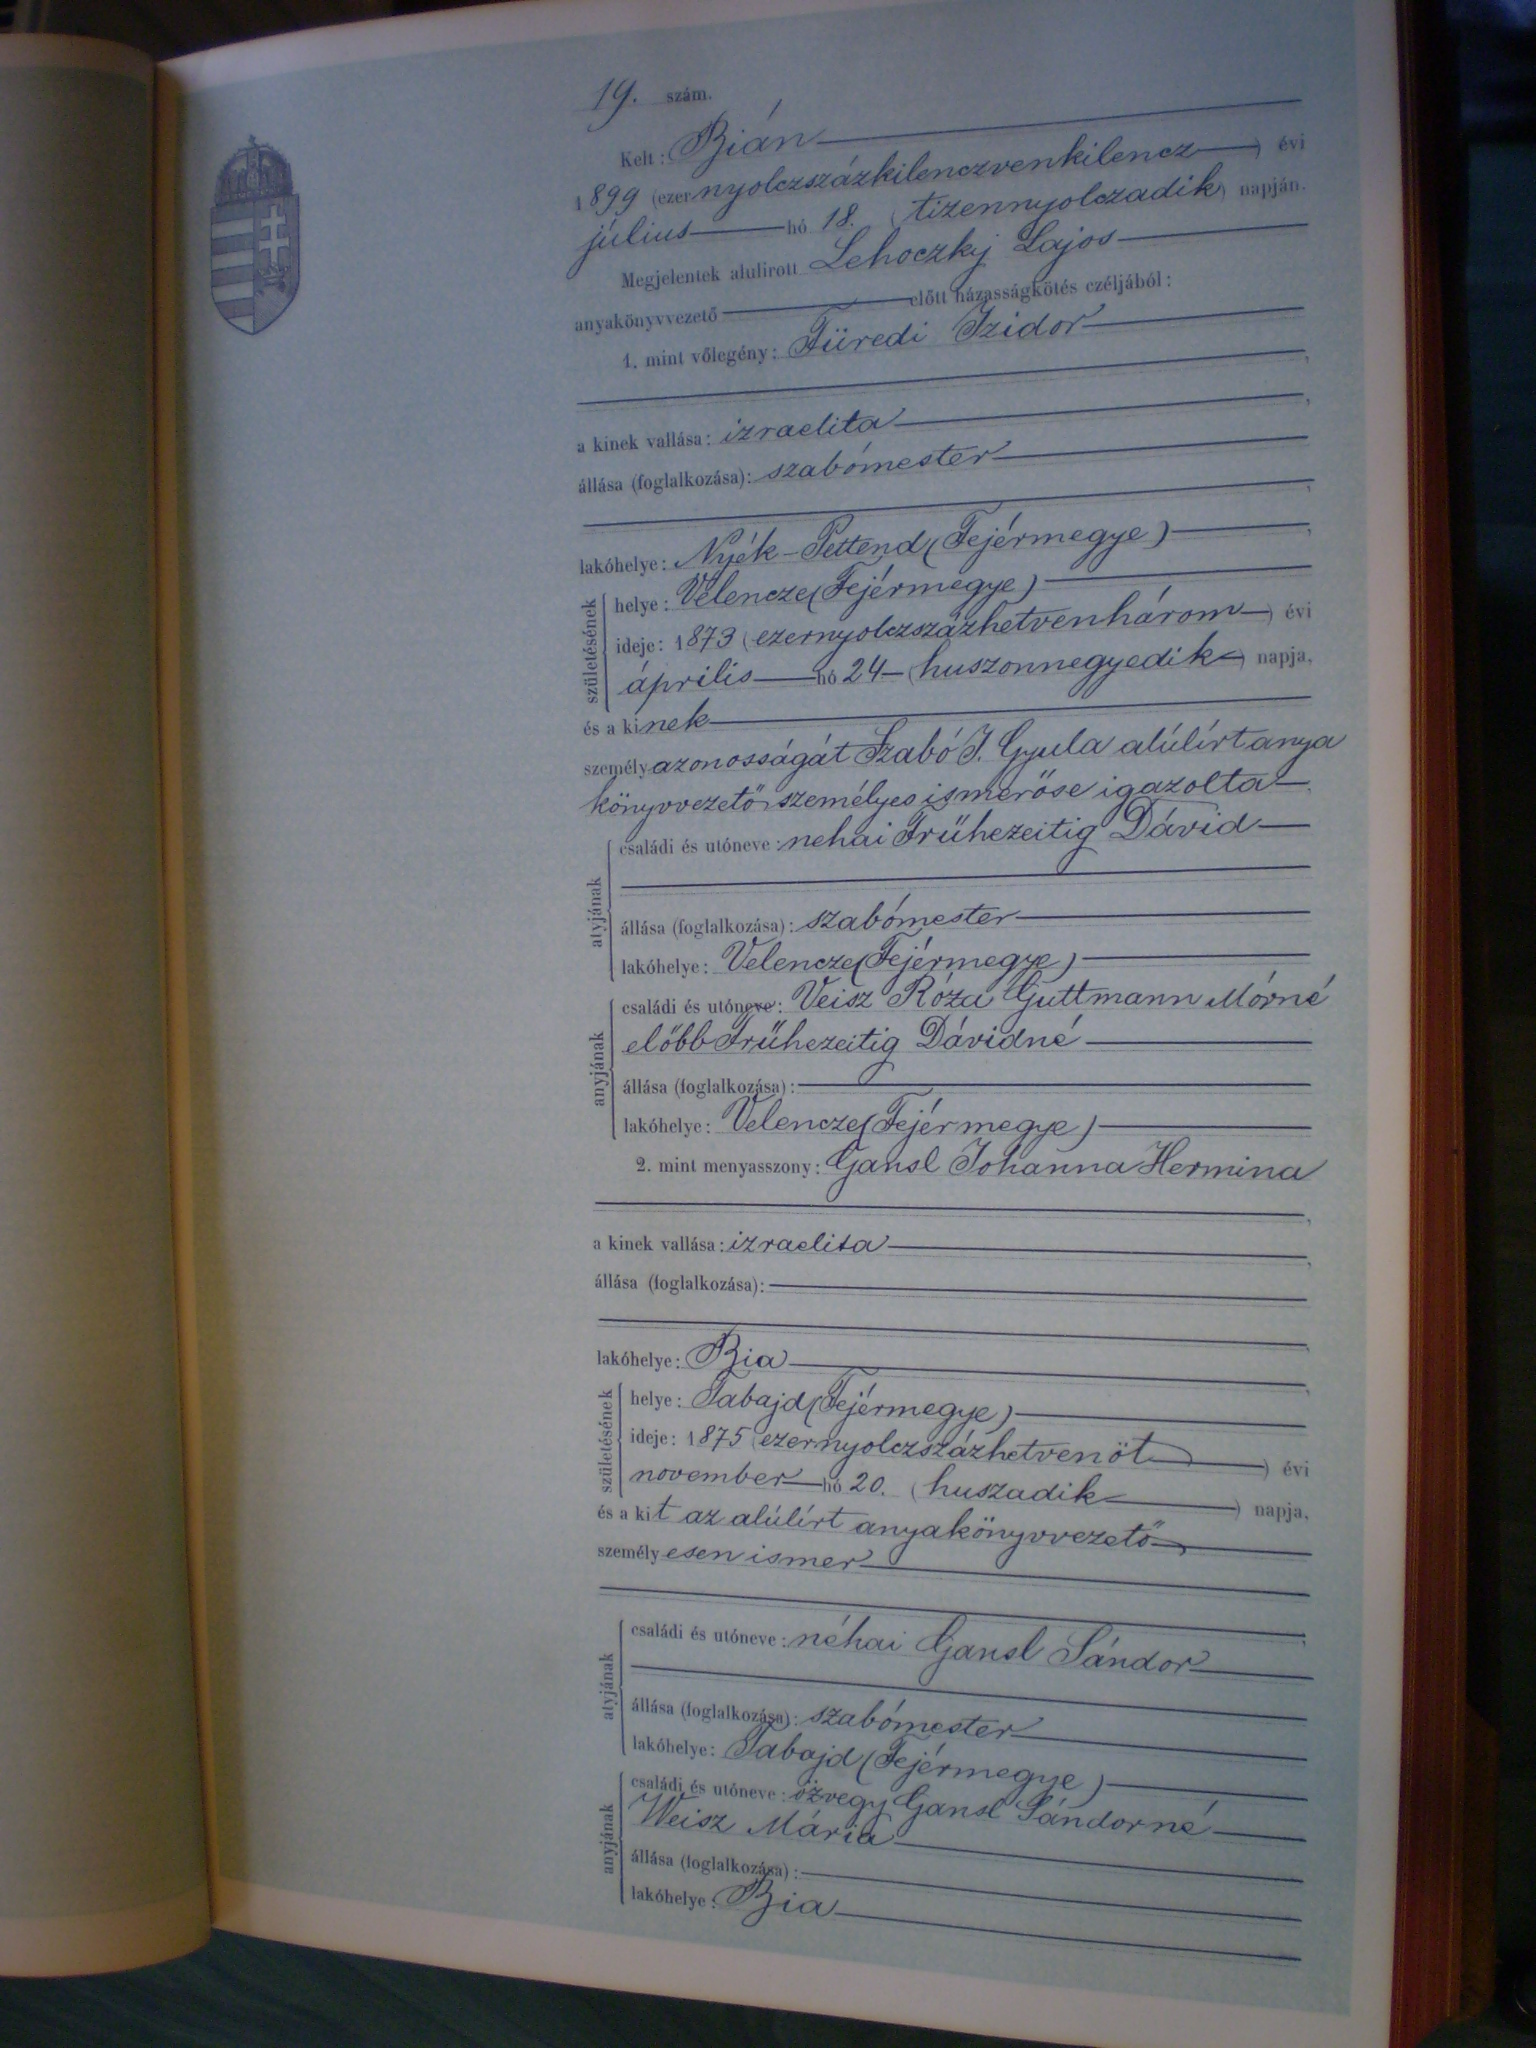 19. szám.
Kelt: Bián
1899 (ezernyolczszázkilenczvenkilencz) évi
július hó 18. (tizennyolczadik) napján.
Megjelentek alulirott Lehoczky Lajos
anyakönyvvezető előtt házasságkötés czéljából:
1. mint vőlegény: Füredi Izidor
a kinek vallása: izraelita
állása (foglalkozása): szabómester
lakóhelye: Nyék-Pettend (Fejérmegye)
születésének
helye: Velencze (Fejérmegye)
ideje: 1873 (ezernyolczszázhetvenhárom) évi
április hó 24 (huszonnegyedik) napja,
és a kinek
személyazonosságát Szabó J. Gyula alúlírt anya
könyvvezető személyes ismerőse igazolta
atyjának
családi és utóneve: nehai Frühezeitig Dávid
állása (foglalkozása): szabómester
lakóhelye: Velencze (Fejérmegye)
anyjának
családi és utóneve: Veisz Róza Guttmann Mórné
előbb Frühezeitig Dávidné
állása (foglalkozása):
lakóhelye: Velencze (Fejérmegye)
2. mint menyasszony: Gansl Johanna Hermina
a kinek vallása: izraelita
állása (foglalkozása):
lakóhelye: Bia
születésének
helye: Tabajd (Fejérmegye)
ideje: 1875 (ezernyolczszázhetvenöt) évi
november hó 20. (huszadik) napja,
és a kit az alúlírt anyakönyvvezető
személyesen ismer
atyjának
családi és utóneve: néhai Gansl Sándor
állása (foglalkozása): szabómester
lakóhelye: Tabajd (Fejérmegye)
anyjának
családi és utóneve: özvegy Gansl Sándorné
Weisz Mária
állása (foglalkozása):
lakóhelye: Bia